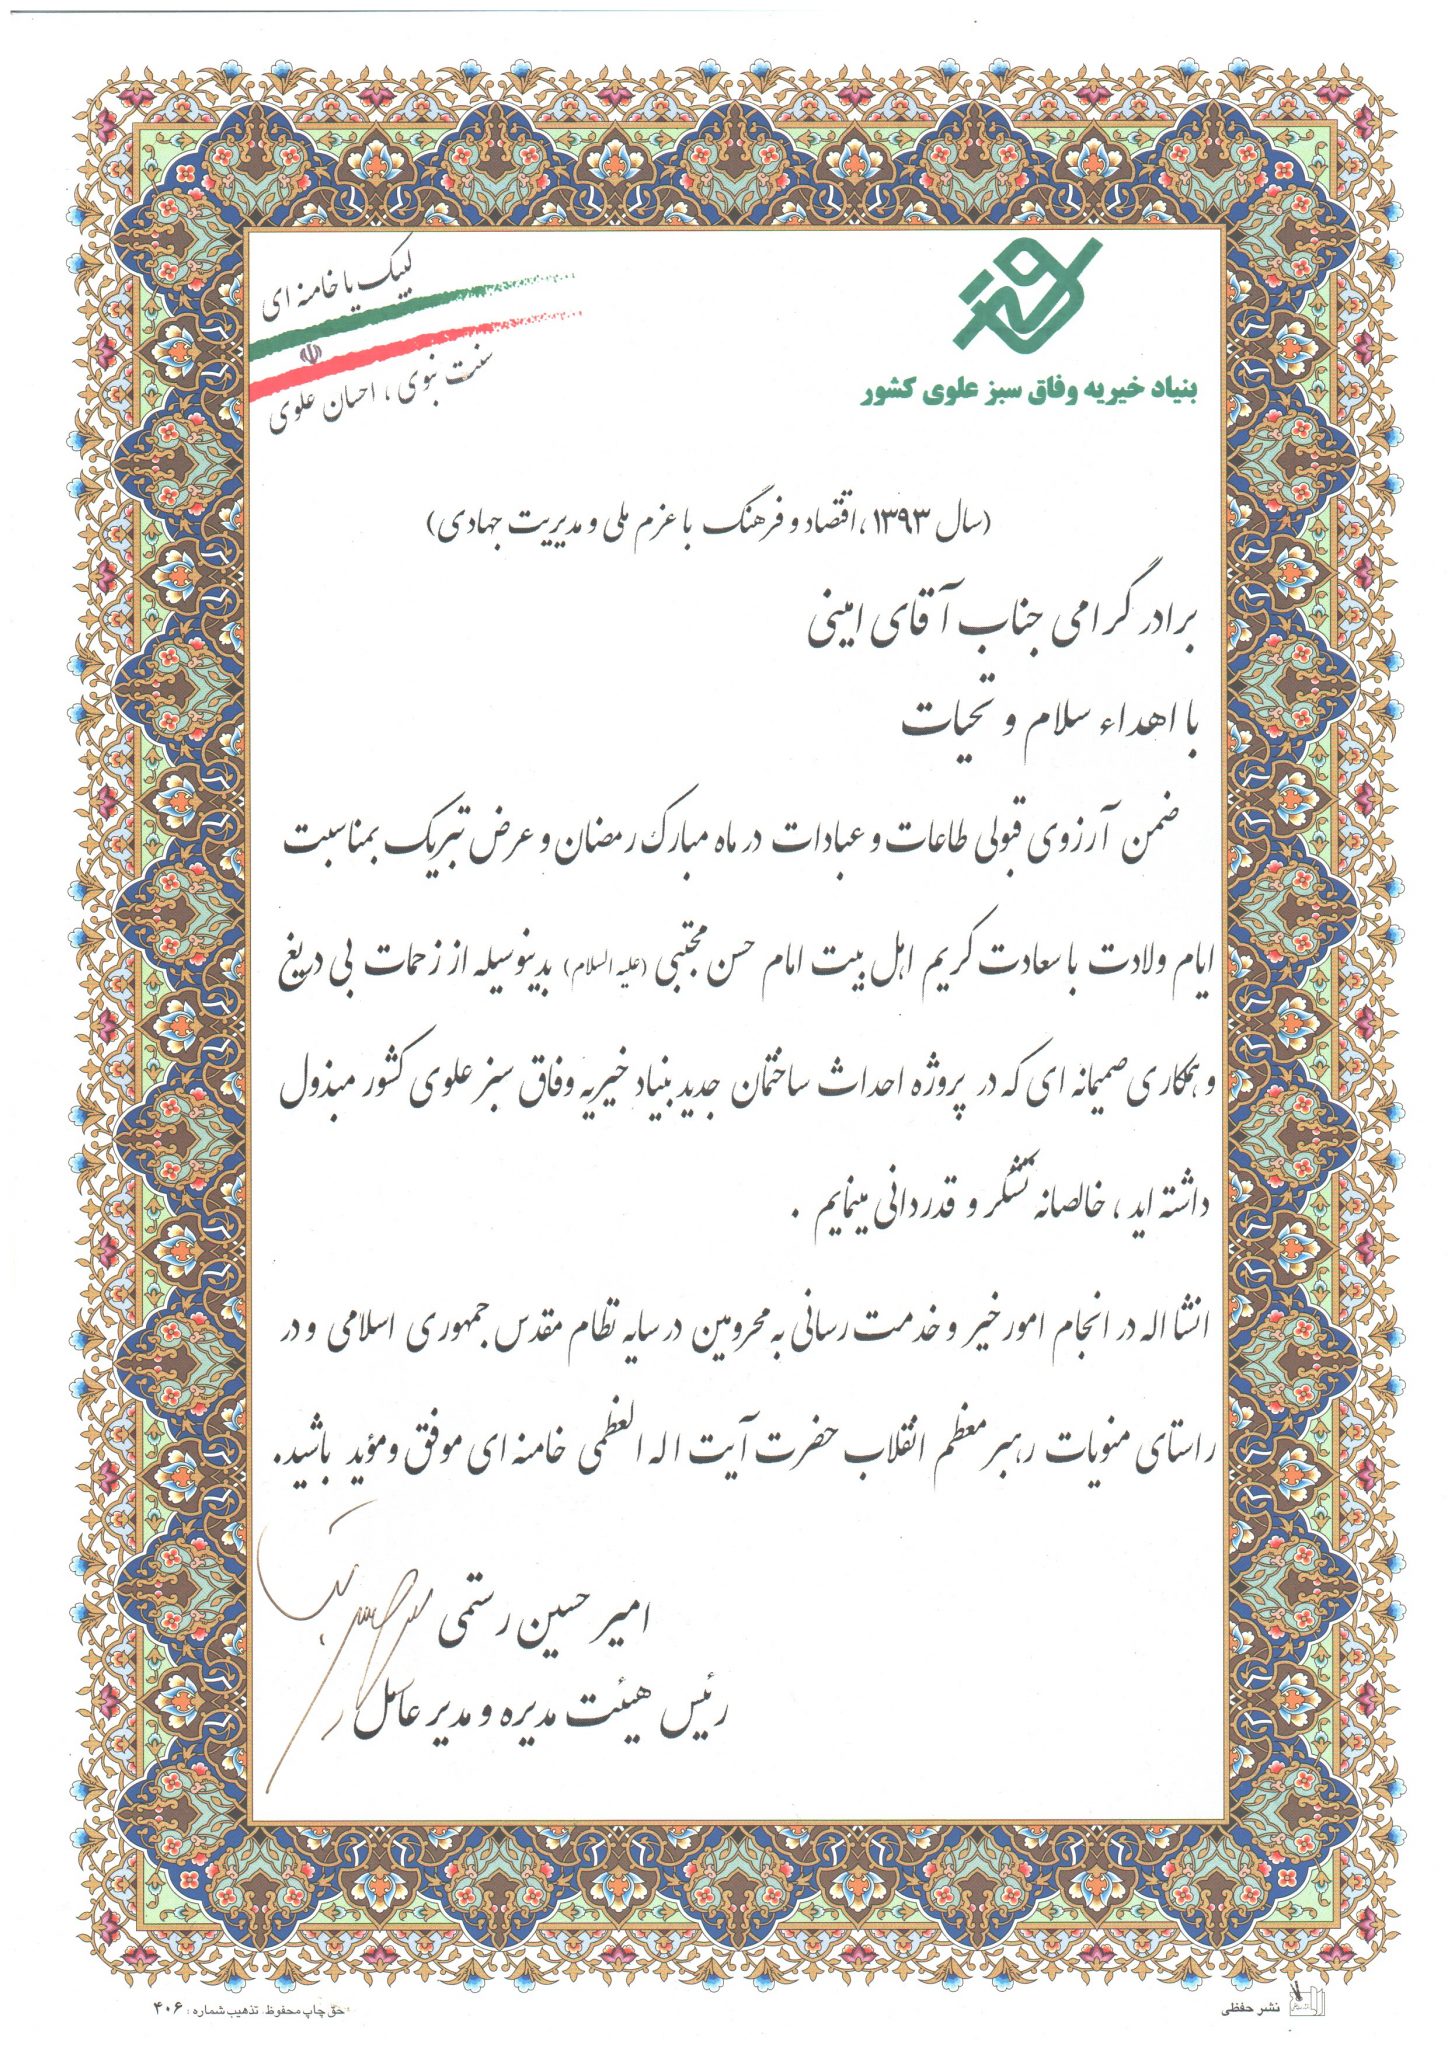 لبیک یا خامنه ای
سنت نبوی ، احسان علوی
بنیاد خیریه وفاق سبز علوی کشور
(سال ۱۳۹۳ ، اقتصاد و فرهنگ با عزم ملی و مدیریت جهادی)
برادر گرامی جناب آقای امینی
با اهداء سلام و تحیات
ضمن آرزوی قبولی طاعات و عبادات در ماه مبارک رمضان و عرض تبریک بمناسبت
ایام ولادت با سعادت کریم اهل بیت امام حسن مجتبی (علیه السلام) بدینوسیله از زحمات بی دریغ
و همکاری صمیمانه ای که در پروژه احداث ساختمان جدید بنیاد خیریه وفاق سبز علوی کشور مبذول
داشته اید ، خالصانه تشکر و قدردانی مینمایم .
انشا اله در انجام امور خیر و خدمت رسانی به محرومین در سایه نظام مقدس جمهوری اسلامی و در
راستای منویات رهبر معظم انقلاب حضرت آیت اله العظمی خامنه ای موفق و مؤید باشید.
امیر حسین رستمی
رئیس هیئت مدیره و مدیر عامل
نشر حفظی
حق چاپ محفوظ. تذهیب شماره : ۴۰۶